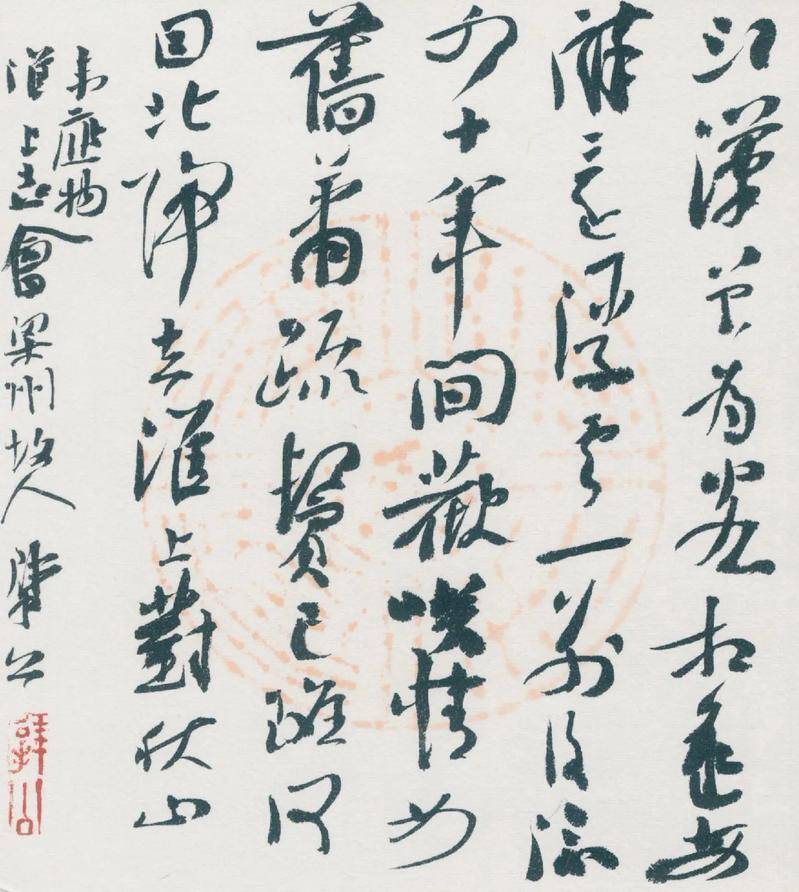 江漢曾為客相逢每
醉還浮雲一别後流
水十年間歡咲情如
舊蕭疏鬢已斑何
因北歸去淮上對秋山
韋應物
淮上喜會梁州故人